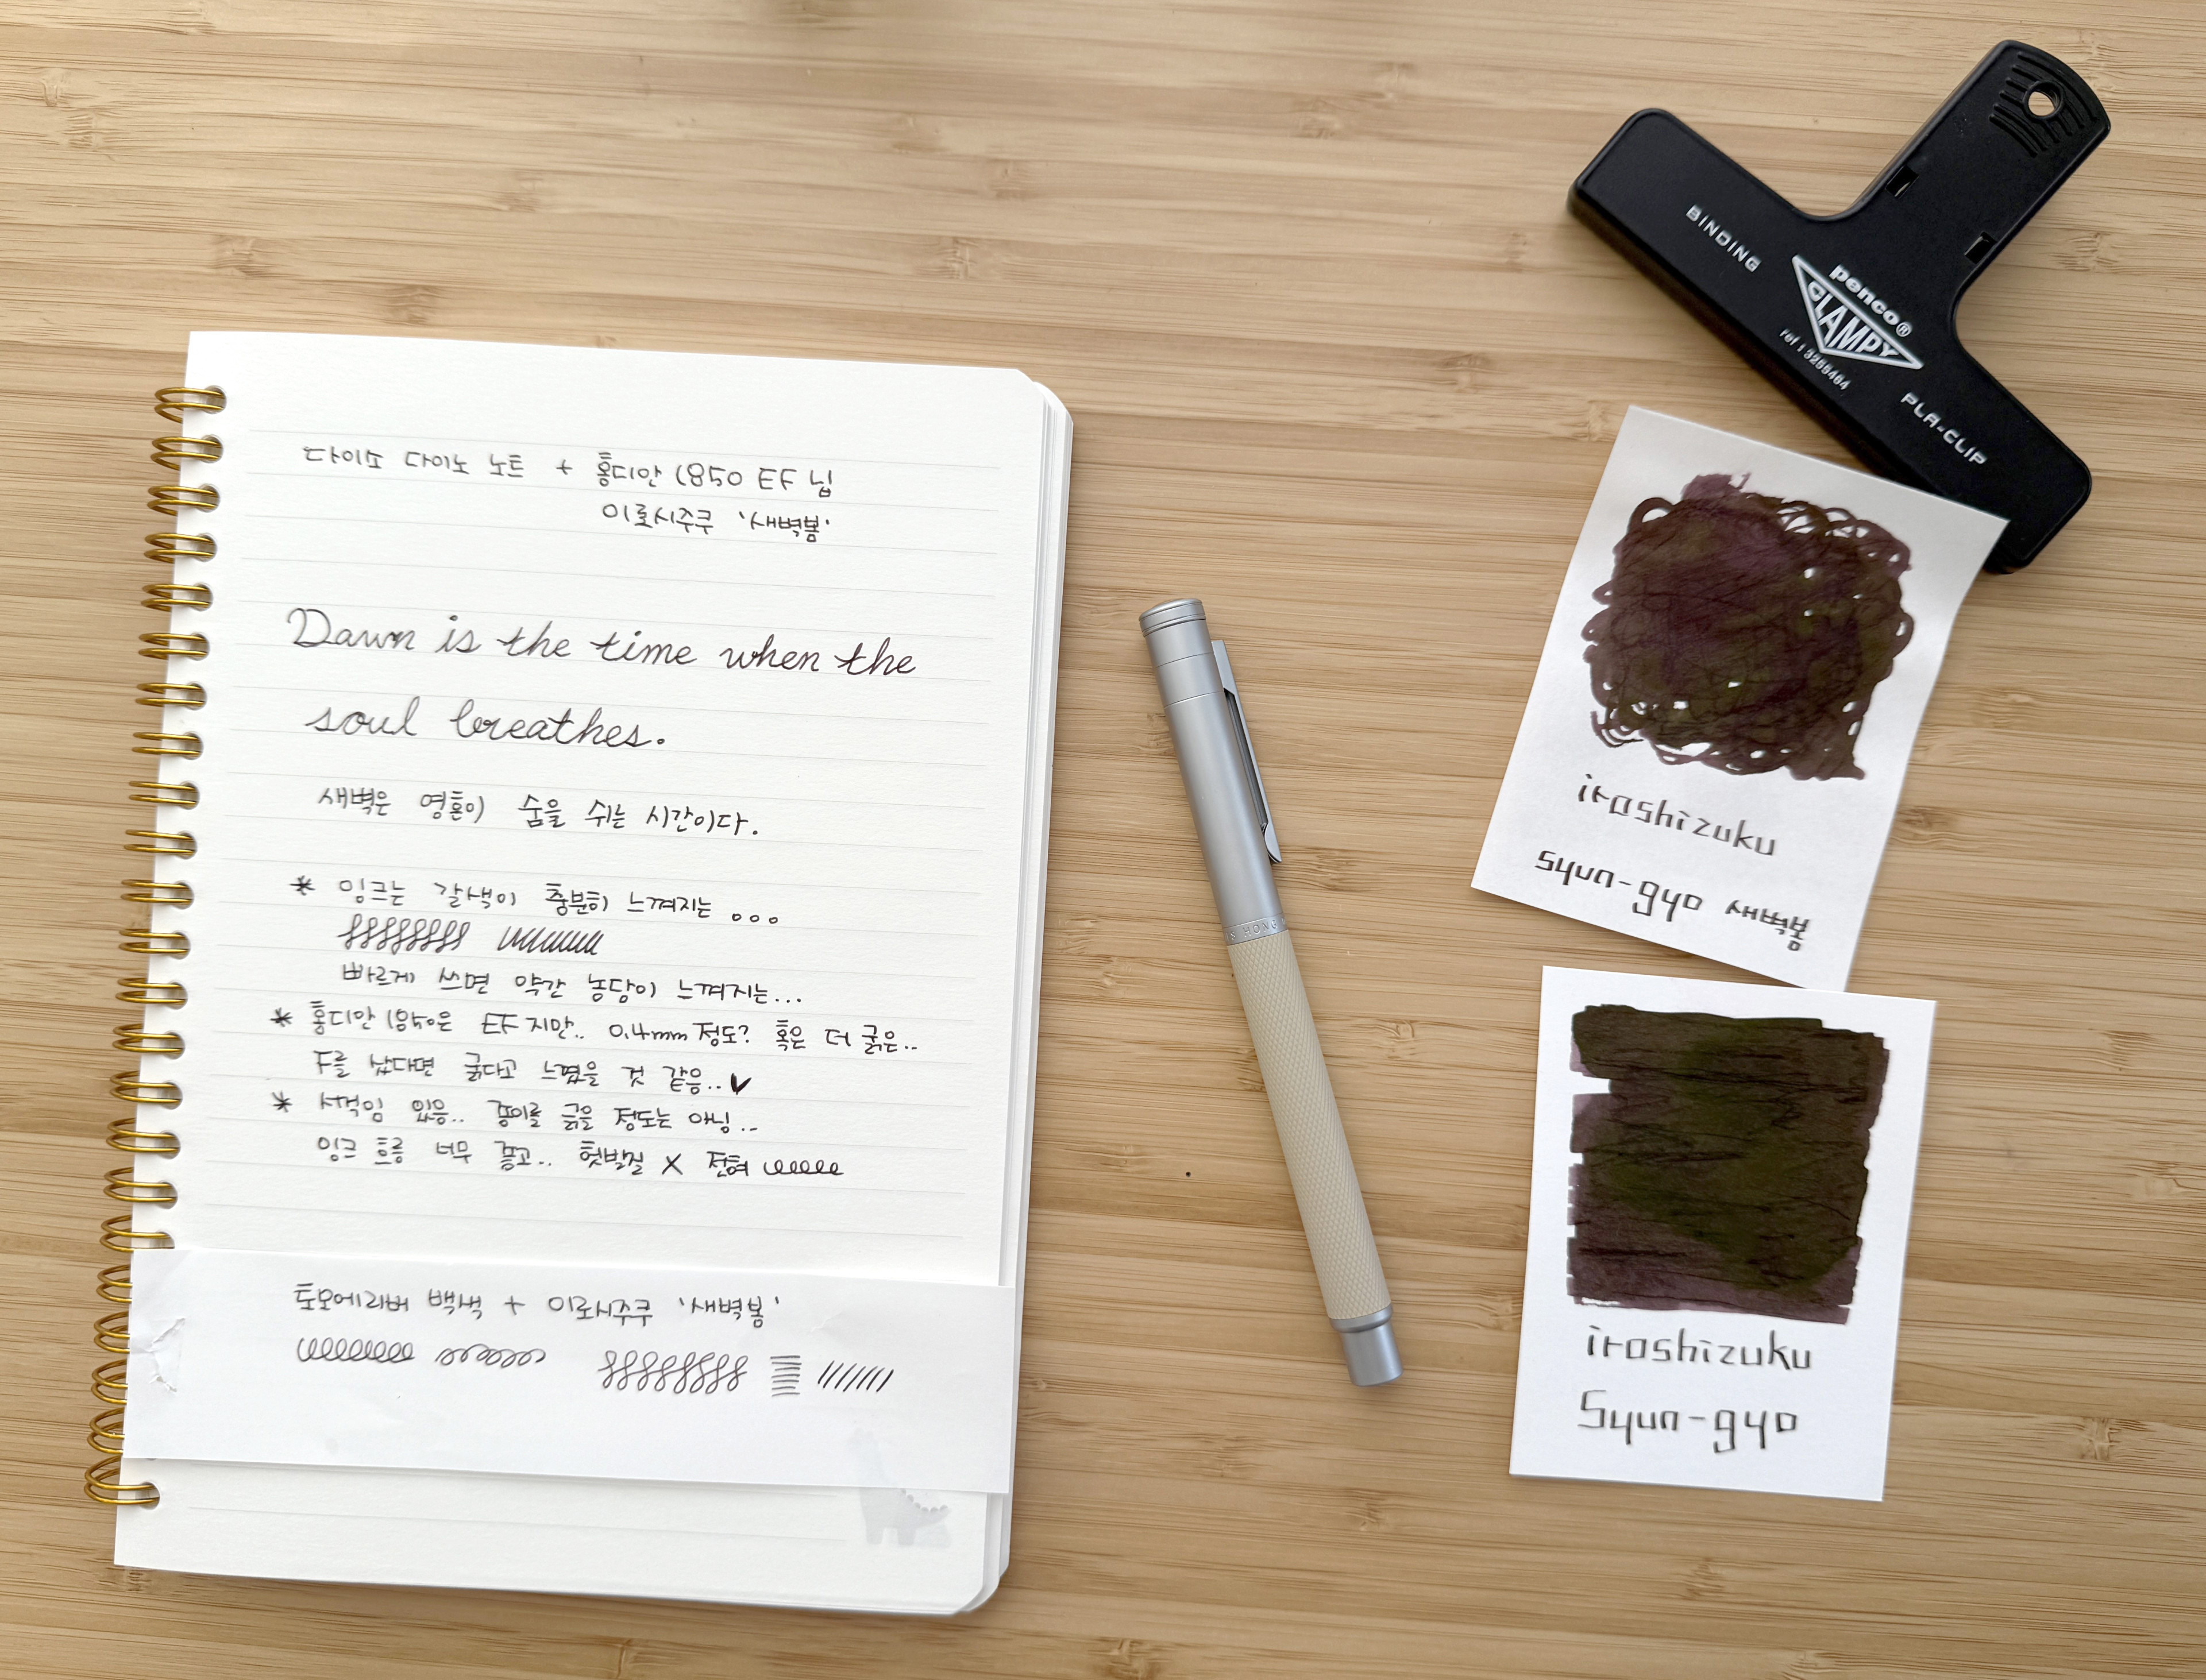 다이소 다이노 노트 + 홍디안 1850 EF 닙
이로시주쿠 '새벽봄'
Dawn is the time when the
soul breathes.
새벽은 영혼이 숨을 쉬는 시간이다.
* 잉크는 갈색이 충분히 느껴지는 ...
빠르게 쓰면 약간 농담이 느껴지는...
* 홍디안 1850은 EF지만.. 0.4mm 정도? 혹은 더 굵은..
F를 샀다면 굵다고 느꼈을 것 같음..
* 서걱임 있음.. 종이를 긁을 정도는 아님..
잉크 흐름 너무 좋고.. 헛발질 X 전혀
토모에리버 백색 + 이로시주쿠 '새벽봄'
HONG
BINDING
penco®
CLAMPY
ref : 3266464
PLA-CLIP
iroshizuku
syun-gyo 새벽봄
iroshizuku
Syun-gyo